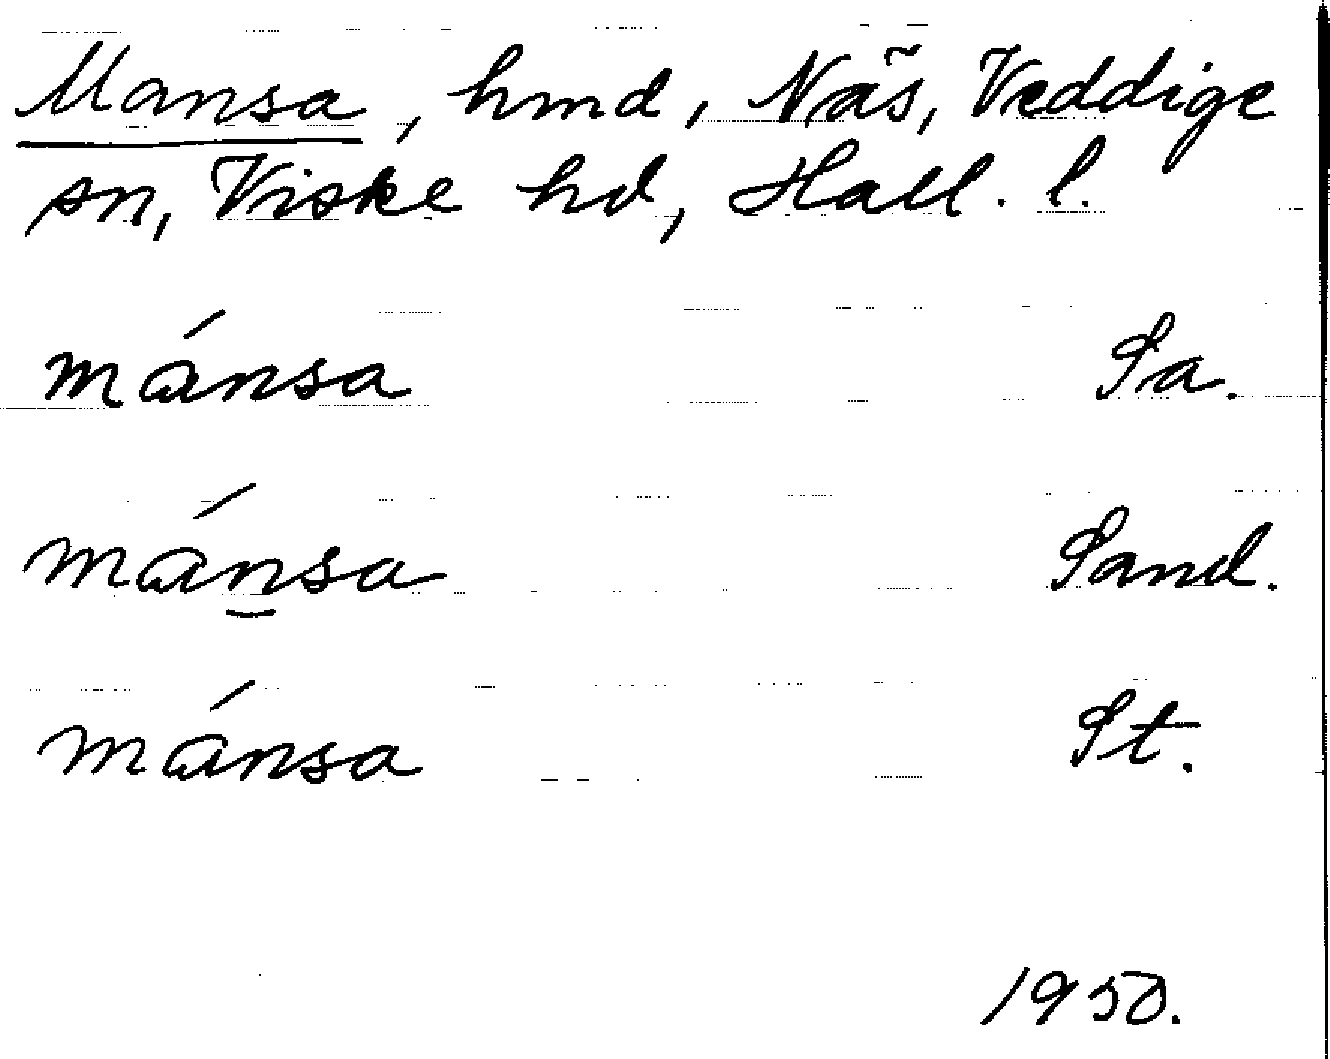 Mansa, hmd, Näs, Veddige
sn, Viske hd, Hall. l.
mánsa Sa.
mánsa Sand.
mánsa St.
1950.